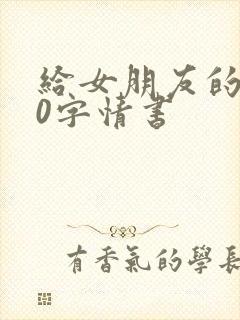 給女朋友的
0字情書
有香氣的學長